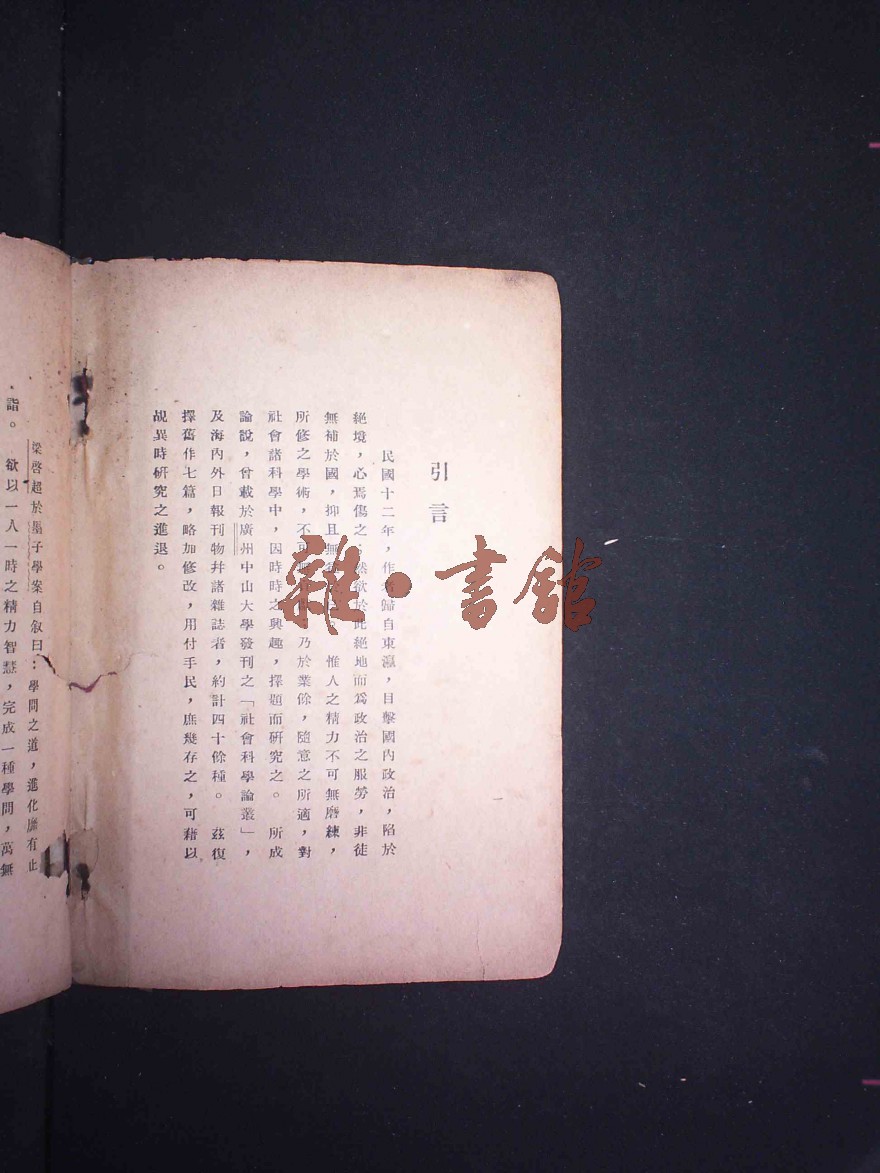 引言
民國十二年，作歸自東瀛，目擊國內政治，陷於
絕境，心焉傷之；然欲於此絕地而爲政治之服勞，非徒
無補於國，抑且無惟人之精力不可無磨練，
所修之學術，不可乃於業餘，隨意之所適，對
社會諸科學中，因時時之興趣，擇題而研究之。　所成
論說，曾載於廣州中山大學發刊之「社會科學論叢」，
及海內外日報刊物幷諸雜誌者，約計四十餘種。　茲復
擇舊作七篇，略加修改，用付手民，庶幾存之，可藉以
覘異時研究之進退。
梁啓超於墨子學案自敘曰：學問之道，進化靡有止
詣。　欲以一人一時之精力智慧，完成一種學問，萬無
雜·書館